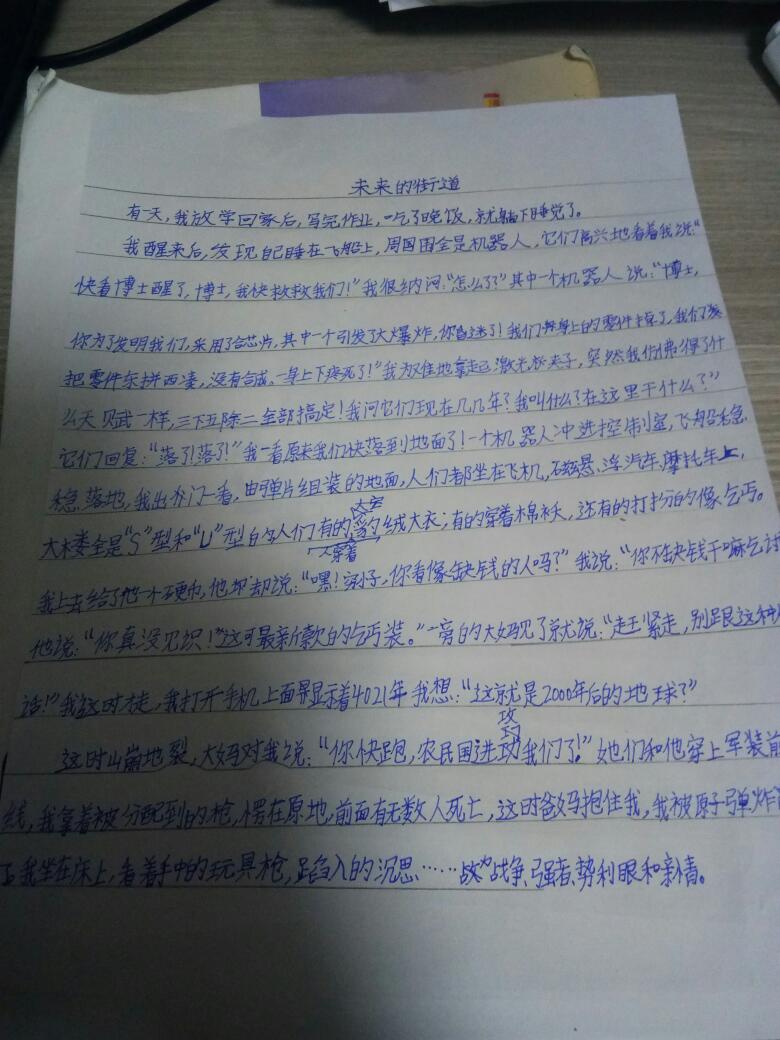 未来的街道
有一天，我放学回家后，写完作业，吃了晚饭，就躺下睡觉了。
我醒来后，发现自己睡在飞船上，周围全是机器人，它们高兴地看着我说："
快看博士醒了，博士，我快救救我们！"我很纳闷："怎么了？"其中一个机器人说："博士，
你为了发明我们，采用了芯片，其中一个引发了大爆炸，你昏迷了！我们身上的零件掉了，我们
把零件东拼西凑，没有合成，一身上下疼死了！"我地拿起激光夹子，突然我仿佛得了什
么天赋一样，三下五除二全部搞定！我问它们现在几几年？我叫什么？在这里干什么？"
它们回复："落了！落了！"我一看原来我们快落到地面了！一个机器人冲进控制室，飞船稳
稳落地，我出外门一看，由弹片组装的地面，人们都坐在飞机，磁悬浮汽车，摩托车上，
大楼全是"S"型和"U"型的人们有的穿着绒大衣；有的穿着棉袄，还有的打扮的像乞丐。
我上去给了他一个硬币，他却说："嘿！小子，你看像缺钱的人吗？"我说："你不缺钱干嘛乞讨
他说："你真没见识！"这可最新款的乞丐装。"一旁的大妈见了就说："赶紧走，别跟这种
话！"我这时才走，我打开手机上面显示着4021年我想："这就是2000年后的地球？"
这时山崩地裂，大妈对我说："你快跑，农民国进攻我们了！"她们和他穿上军装前
线，我拿着被分配到的枪，愣在原地，前面有无数人死亡，这时爸妈抱住我，我被原子弹炸
我坐在床上，看着手中的玩具枪，陷入的沉思……战为战争、强者、势利眼和亲情。